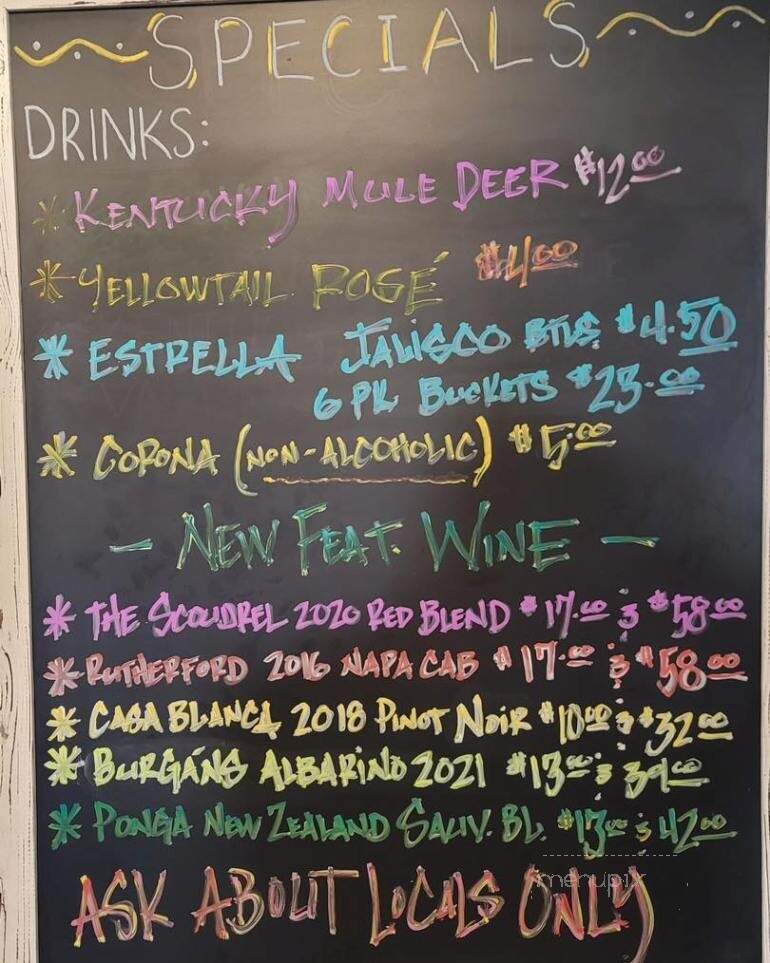 SPECIALS
DRINKS:
* KENTUCKY MULE DEER $12.00
* YELLOWTAIL ROSÉ $4.00
* ESTRELLA JALISCO BTLS $4.50
6 PK BUCKETS $23.00
* CORONA (NON-ALCOHOLIC) $5.00
- NEW FEAT. WINE -
* THE SCOUDREL 2020 RED BLEND $17.00 & $58.00
* RUTHERFORD 2016 NAPA CAB $17.00 & $58.00
* CASA BLANCA 2018 PINOT NOIR $10.00 & $32.00
* BURGÁNS ALBARINO 2021 $13.00 & 39.00
* PONGA NEW ZEALAND SAUV. BL. $13.00 & 42.00
ASK ABOUT LOCALS ONLY
menupix